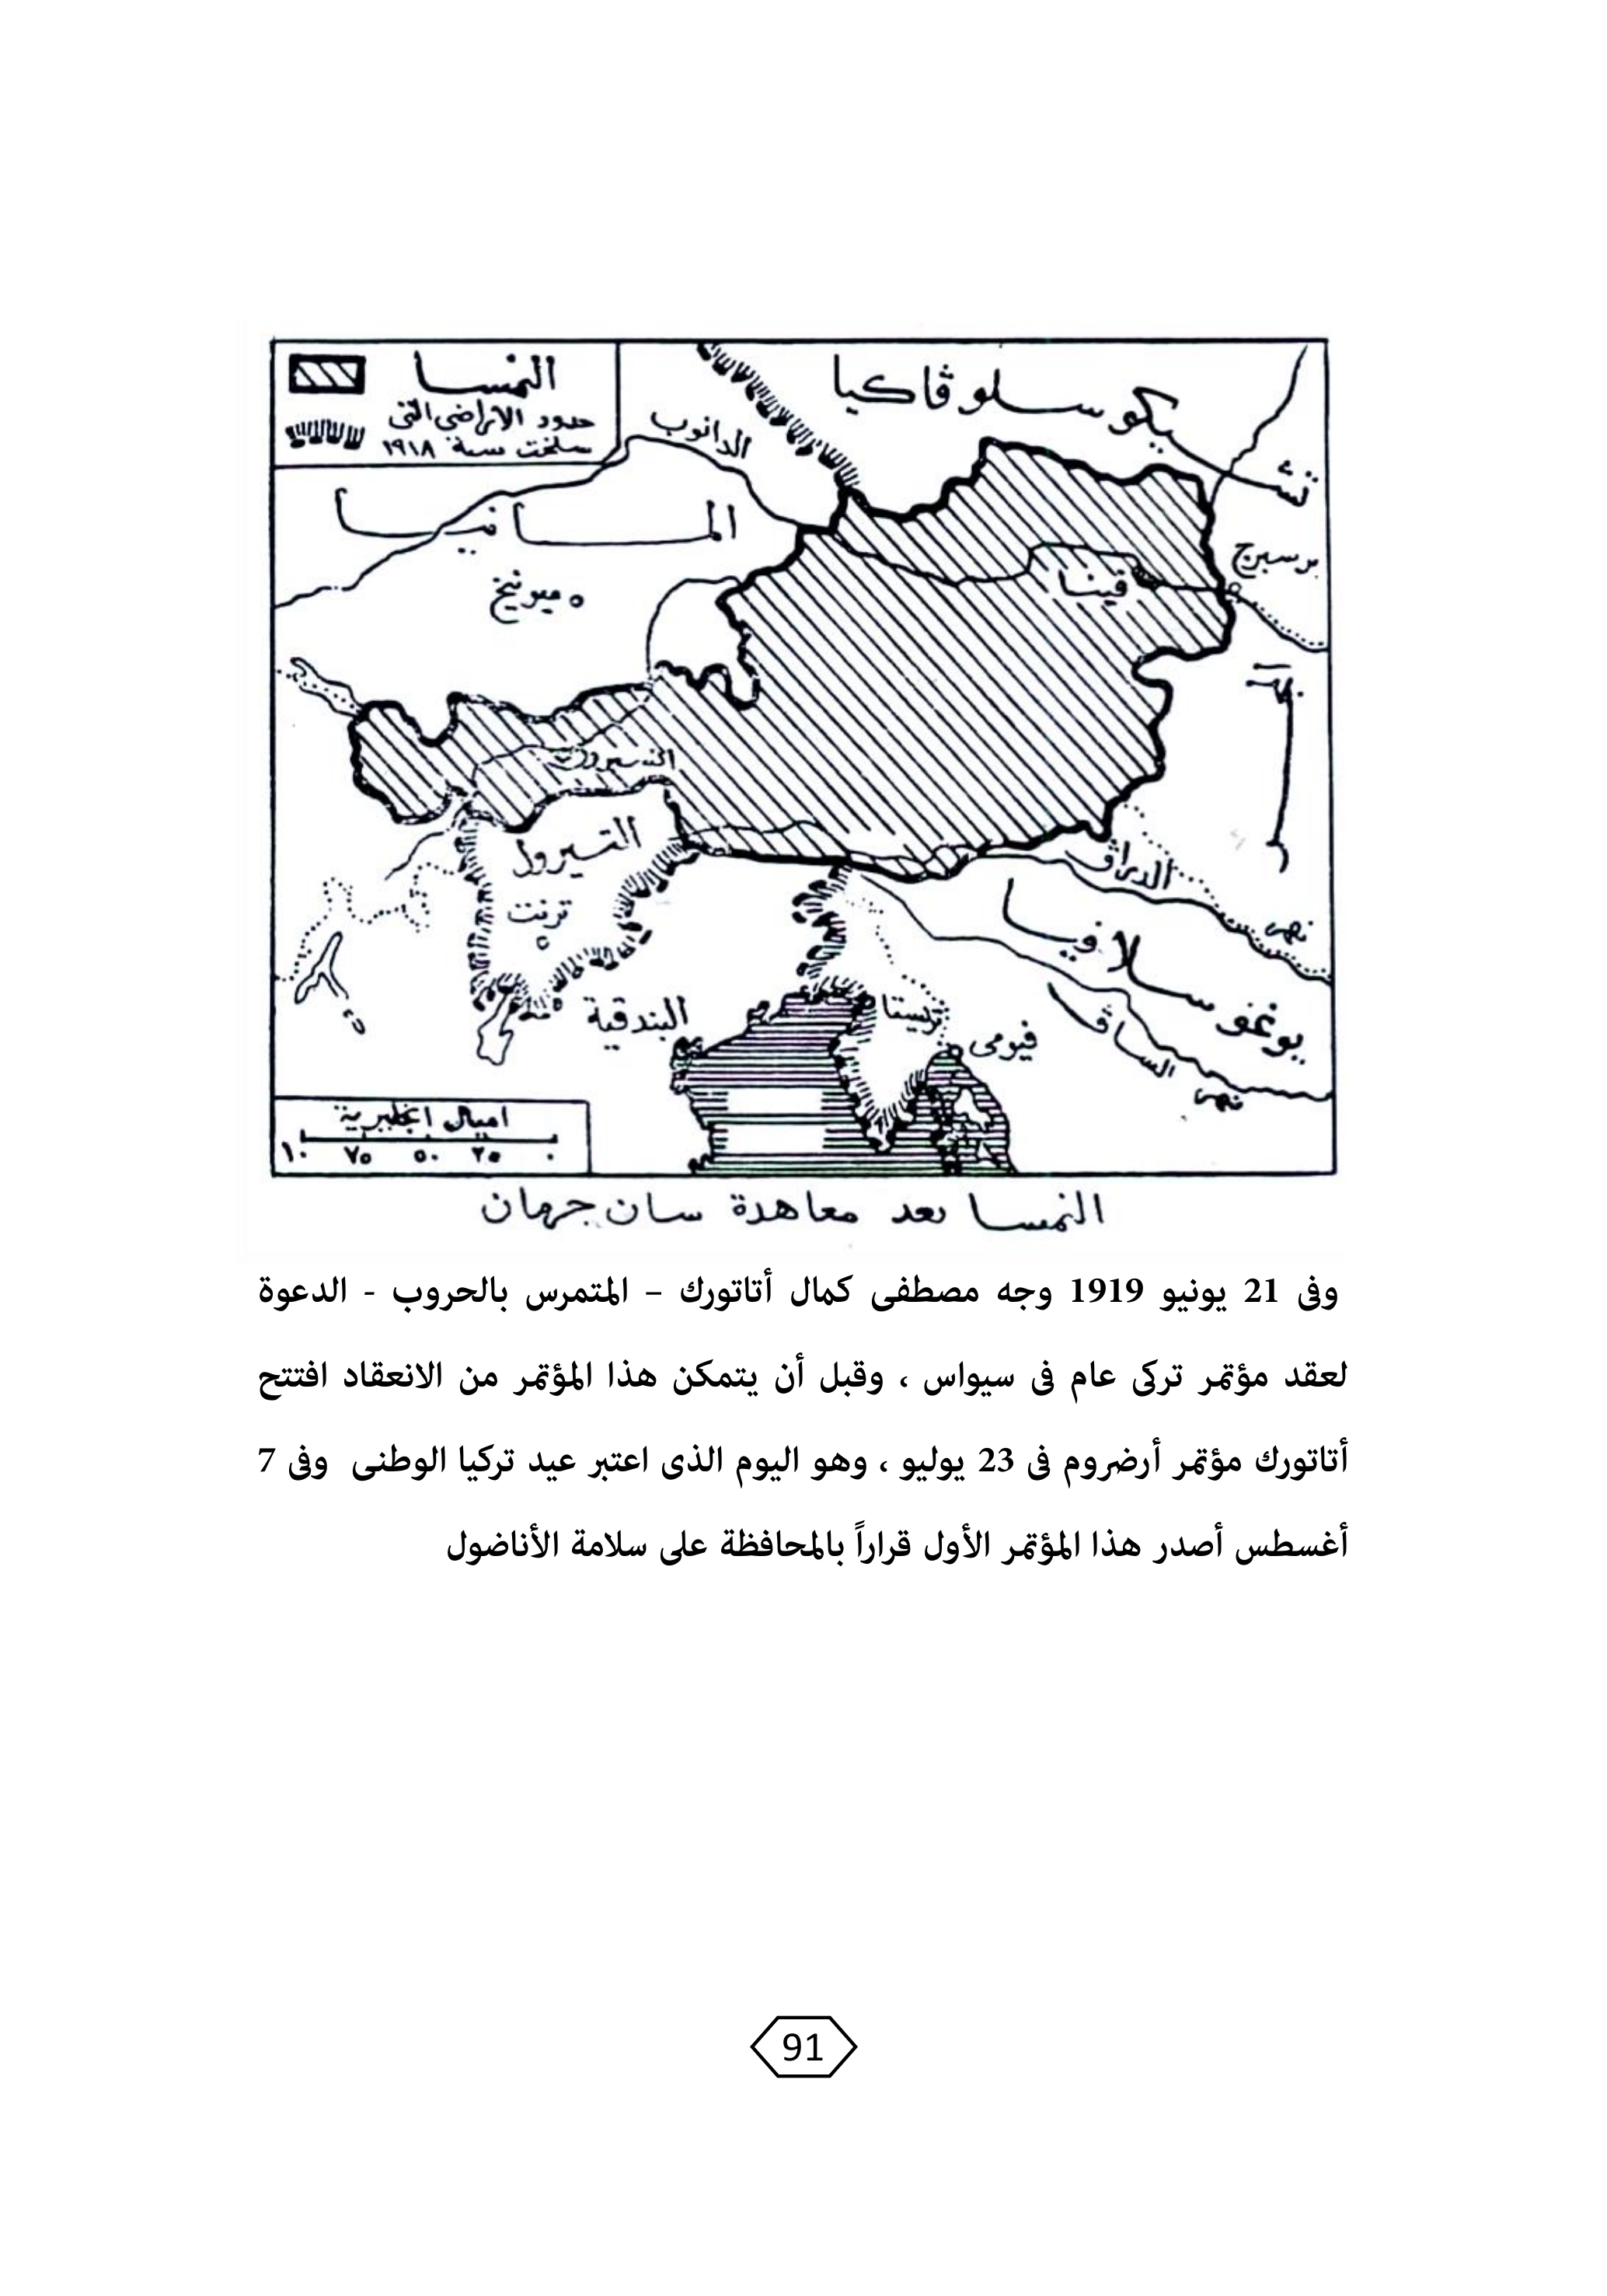 النمسا
حدود الاراضى التى
سلخت سنة ١٩١٨
تشيكوسلوڤاكيا
الدانوب
المانيا
برسبرج
ميونيخ
ڤينا
التيرول
ترنت
نهر الدراڤ
يوغوسلافيا
البندقية
تريستا
فيومى
نهر الساڤ
اميال انجليزية
١٠٠ ٧٥ ٥٠ ٢٥ ٠
النمسا بعد معاهدة سان جرمان
وفى 21 يونيو 1919 وجه مصطفى كمال أتاتورك – المتمرس بالحروب - الدعوة
لعقد مؤتمر تركى عام فى سيواس ، وقبل أن يتمكن هذا المؤتمر من الانعقاد افتتح
أتاتورك مؤتمر أرضروم فى 23 يوليو ، وهو اليوم الذى اعتبر عيد تركيا الوطنى وفى 7
أغسطس أصدر هذا المؤتمر الأول قراراً بالمحافظة على سلامة الأناضول
91